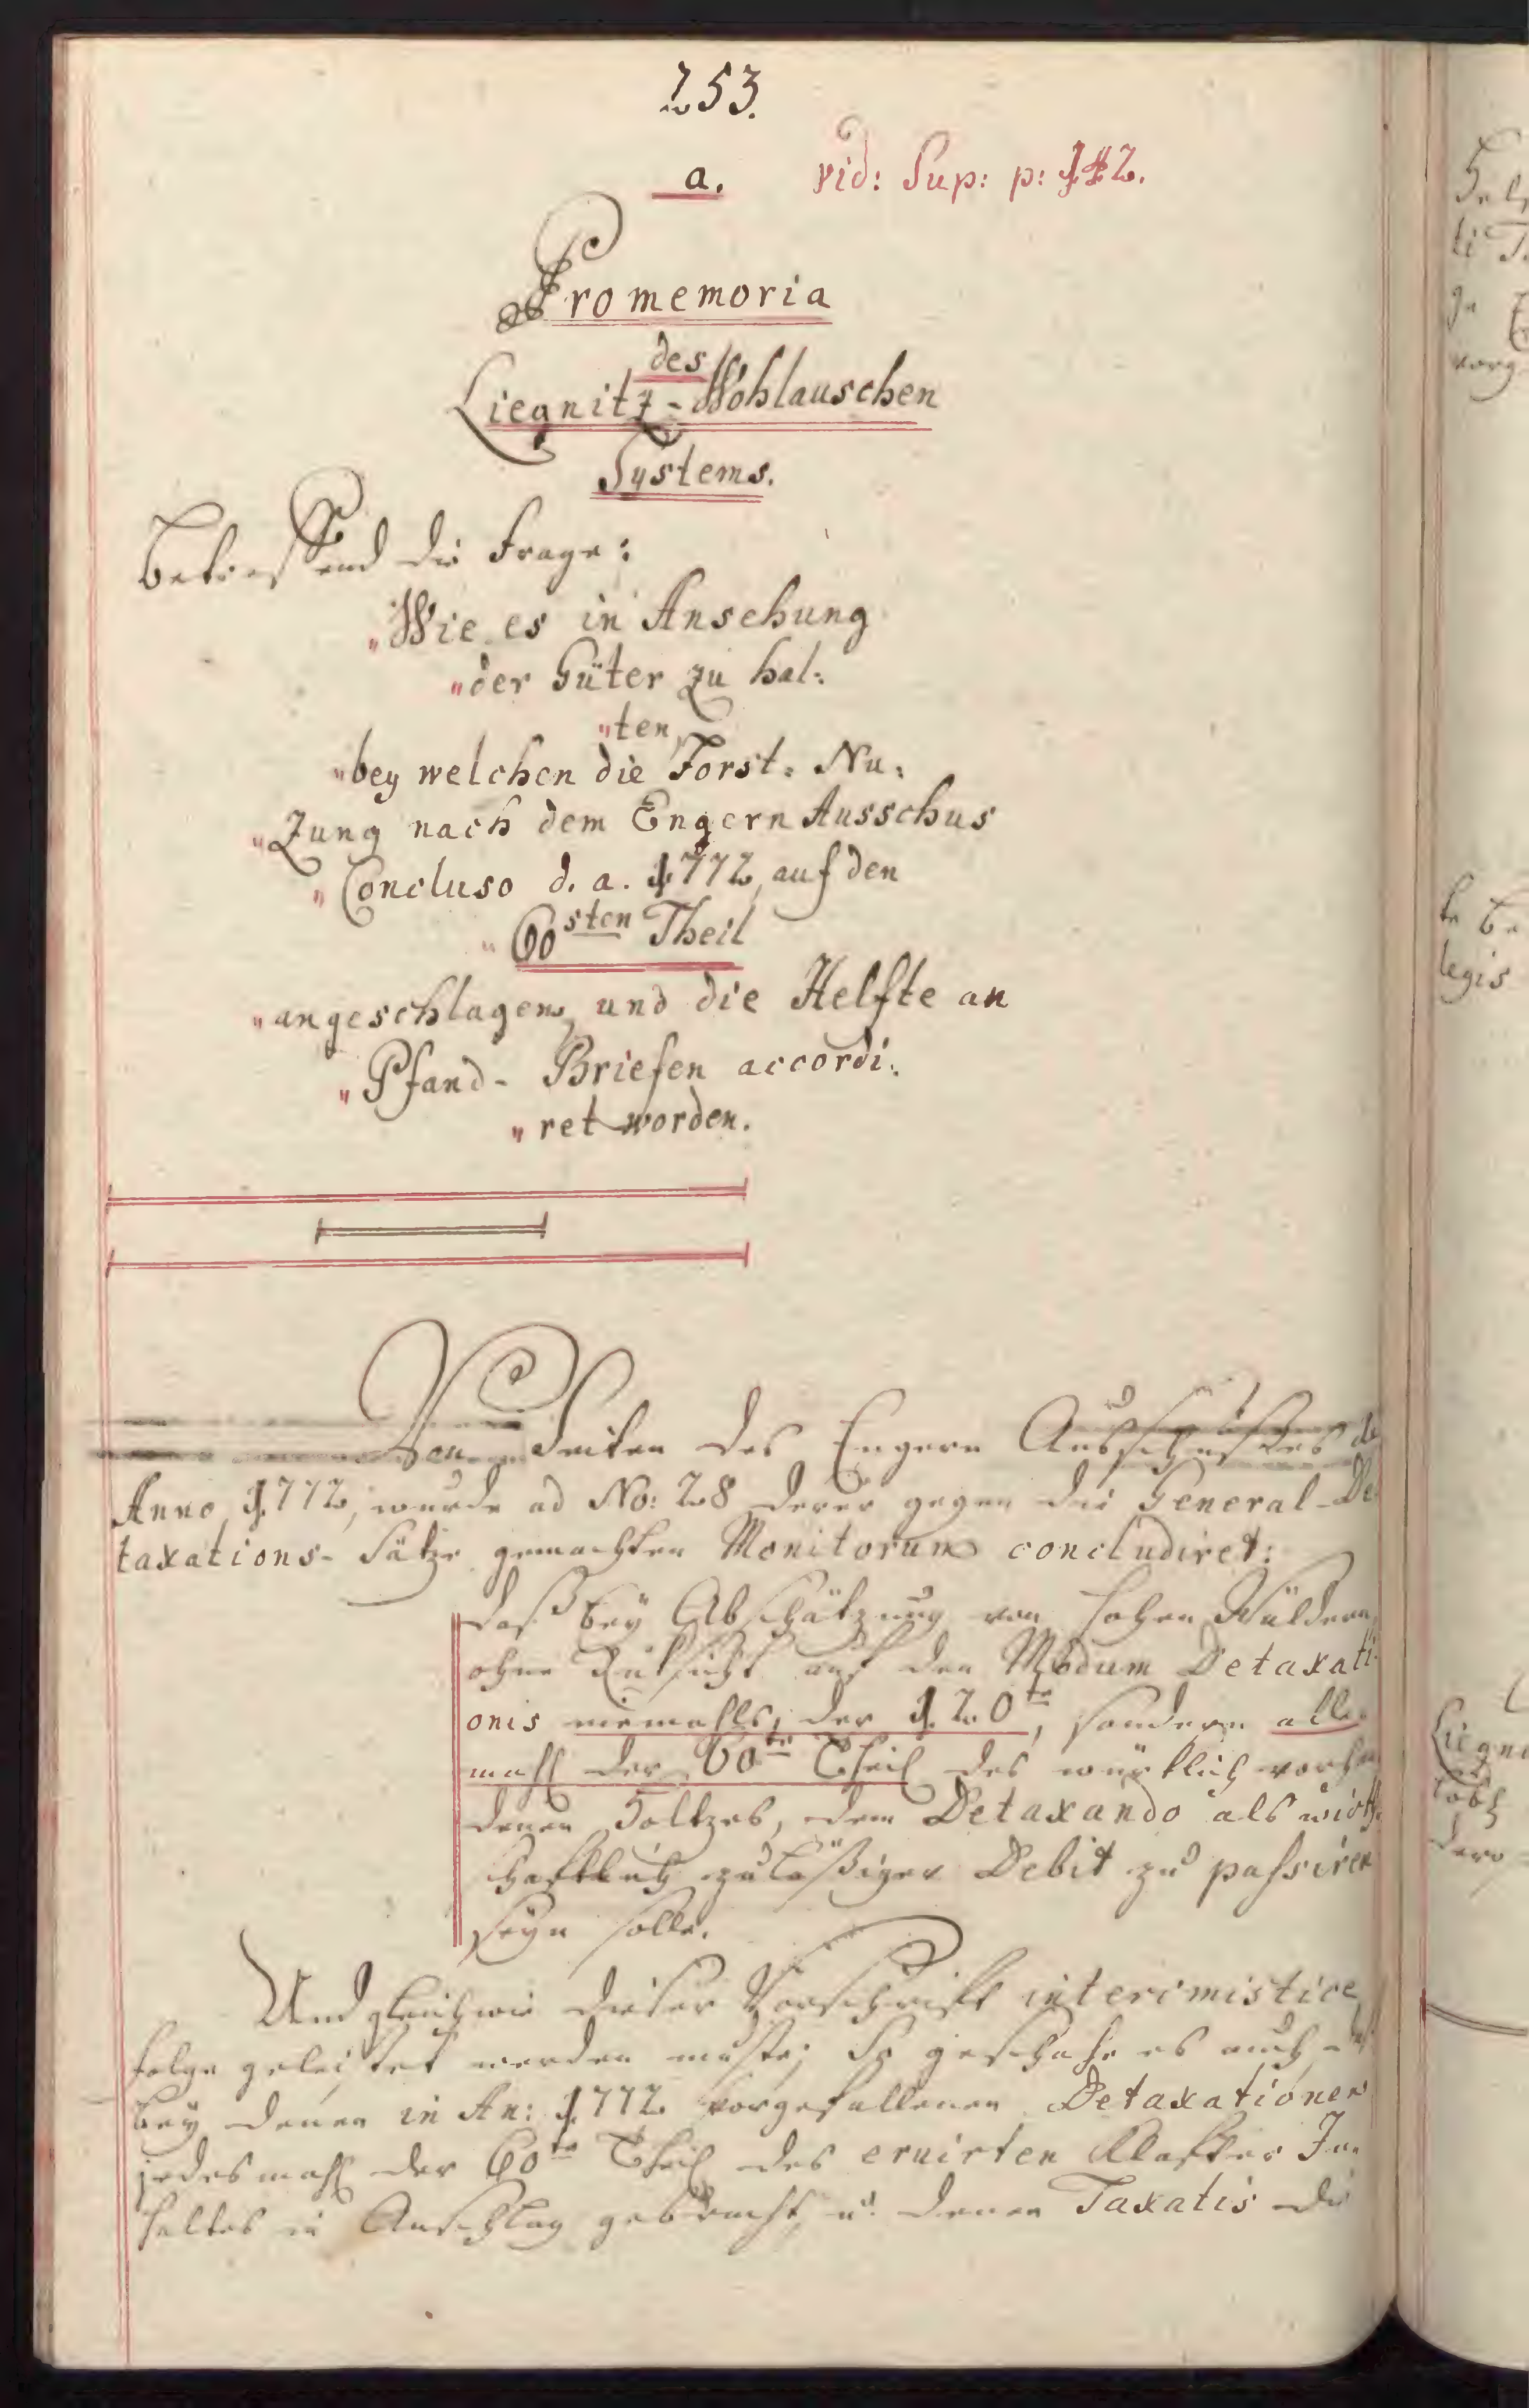 253.
a. vid: Sup: p: 142.
Promemoria
des
Liegnitz-Wohlauschen
Systems.
Betreffend die Frage:
"Wie es in Ansehung
"der Güter zu hal:
"ten,
"bey welchen die Forst: Nu:
"Zung nach dem Engern Ausschus
"Concluso d. a. 1772, auf den
"60sten Theil
"angeschlagen, und die Helfte an
"Pfand- Briefen accordi:
"ret worden.
Von Seiten des Engern Ausschusses de
Anno 1772, wurde ad No: 28 derer gegen die General-De
taxations- Sätze gemachten Monitorum concludiret:
daß bey Abschätzung von hohen Wäldern,
ohne Rüksicht auf den Modum Detaxati-
onis niemahls, der 120te, sondern alle-
mahl der 60te Theil des würklich vorhan
denen Holtzes, dem Detaxando als wirth-
schaftlich zuläßiger Debit zu passiren
seyn solle.
Und gleichwie dieser Vorschrift interimistice
folge geleistet werden muste; So geschahe es auch, daß
bey denen in An: 1772 vorgefallenen Detaxationen
jedesmahl der 60te Theil des eruirten Klafter In-
haltes in Anschlag gebracht, u. denen Taxatis die